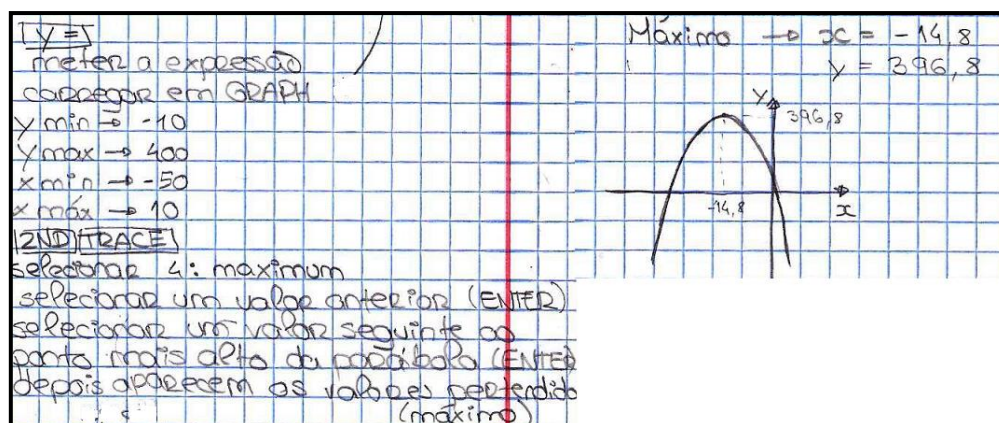 Y =
meter a expressão
carregar em GRAPH
y min → -10
y max → 400
x min → -50
x máx → 10
2ND TRACE
selecionar 4: maximum
selecionar um valor anterior (ENTER)
selecionar um valor seguinte ao
ponto mais alto da parábola (ENTER
depois aparecem os valores pertendido
(máximo)
Máximo → x = -14,8
y = 396,8
y
396,8
-14,8
x